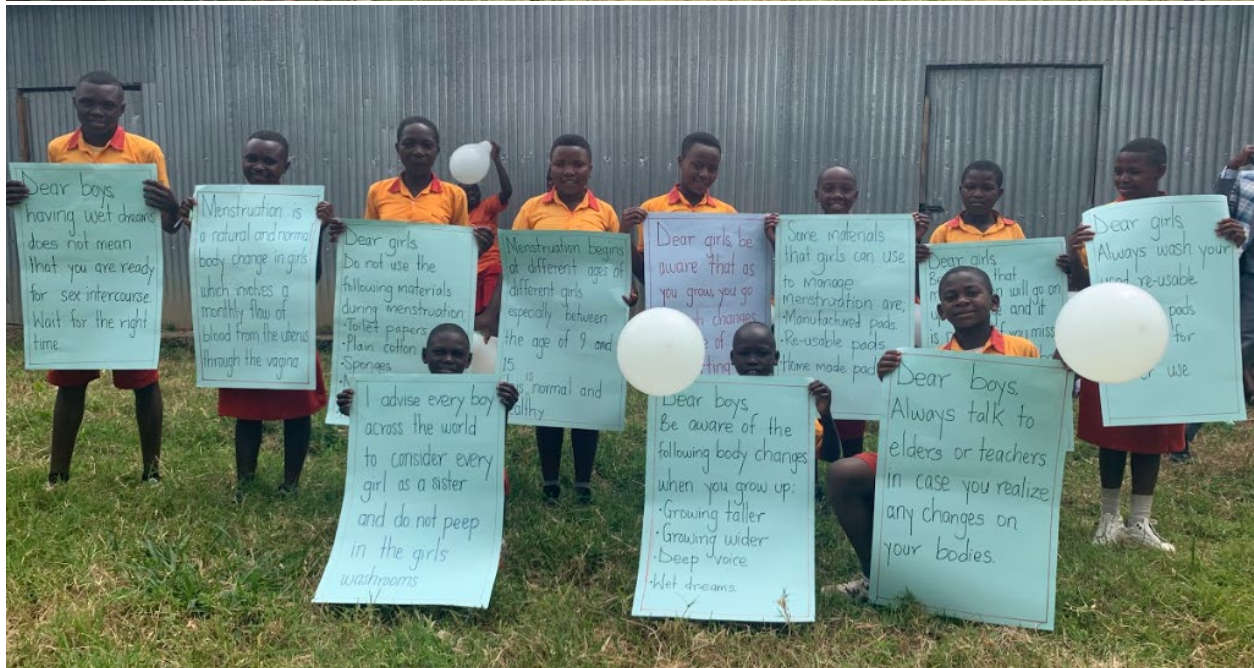 Dear boys,
having wet dreams
does not mean
that you are ready
for sex intercourse.
Wait for the right
time.
Menstruation is
a natural and normal
body change in girls
which involves a
monthly flow of
blood from the uterus
through the vagina.
Dear girls,
Do not use the
following materials
during menstruation
•Toilet papers
•Plain cotton
Sponges
Menstruation begins
at different ages of
different girls
especially between
the age of 9 and
15.
is
normal and
Dear girls be
aware that as
you grow, you go
changes
of
Some materials
that girls can use
to manage
menstruation are;
•Manufactured pads.
•Re-usable pads
•Home made pads
Dear girls
that
will go on
and it
is
you miss
Dear girls,
Always wash your
used re-usable
pads
for
use
I advise every boy
across the world
to consider every
girl as a sister
and do not peep
in the girls'
washrooms
Dear boys,
Be aware of the
following body changes
when you grow up:
•Growing taller
•Growing wider
•Deep voice
•Wet dreams.
Dear boys,
Always talk to
elders or teachers
in case you realize
any changes on
your bodies.